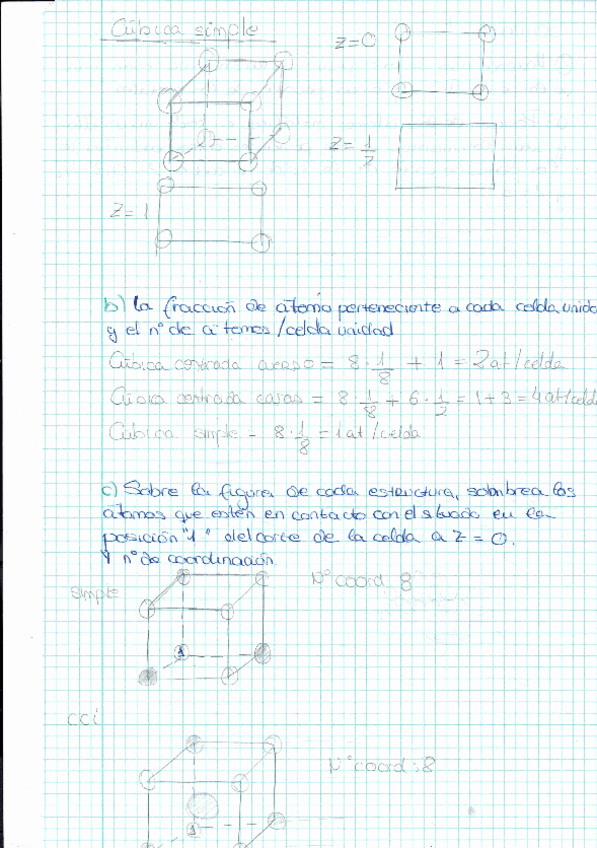 Cúbica simple
z=0
z= 1/2
z= 1
b) La fracción de átomo perteneciente a cada celda unida
y el nº de átomos/celda unidad
Cúbica centrada = 8·1/8 + 1 = 2at/celda
Cúbica centrada caras = 8·1/8 + 6·1/2 = 1+3 = 4at/celda
Cúbica simple = 8·1/8 = 1at/celda
c) Sobre la figura de cada estructura, sombrea los
átomos que estén en contacto con el situado en la
posición "1" del corte de la celda a z = 0.
Y nº de coordinación.
simple
Nº coord 8
1
cci
Nº coord: 8
1